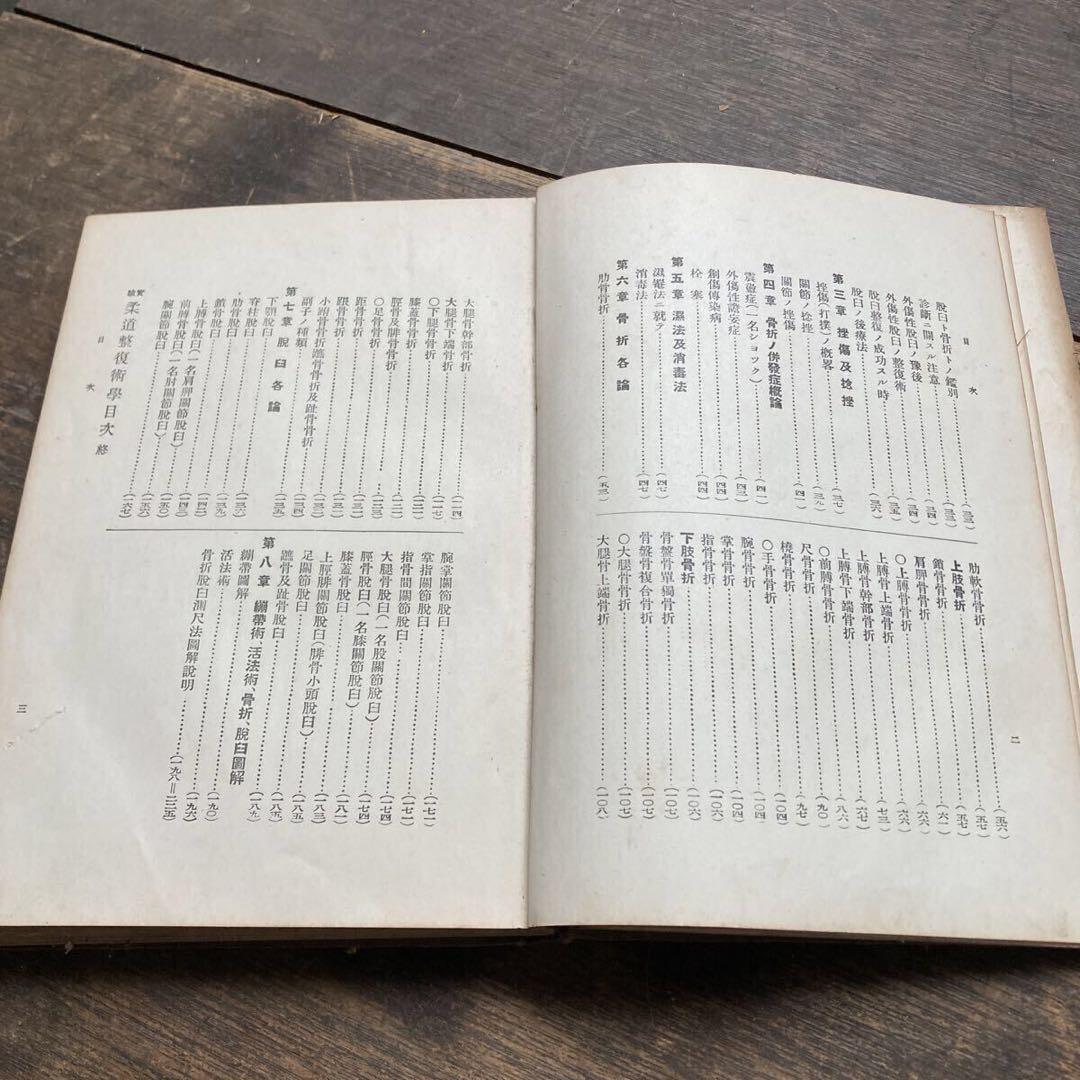 目次
脫臼ト骨折トノ鑑別……(三三)
診斷ニ關スル注意……(三三)
外傷性脫臼ノ豫後……(三四)
外傷性脫臼ノ整復術……(三五)
脫臼整復ノ成功スル時……(三五)
脫臼ノ後療法……(三六)
第三章 挫傷及捻挫……(三七)
挫傷(打撲)ノ槪畧……(三九)
關節ノ捻挫……(四一)
關節ノ挫傷
第四章 骨折ノ併發症槪論……(四一)
震盪症(一名ショック)……(四三)
外傷性譫妄症……(四四)
創傷傳染病……(四四)
栓塞……(四四)
第五章 濕法及消毒法
濕罨法ニ就テ……(四七)
消毒法……(四七)
第六章 骨折各論
肋骨骨折……(五三)
肋軟骨骨折……(五六)
上肢骨折……(五七)
鎖骨骨折……(五七)
肩胛骨骨折……(六一)
〇上膊骨骨折……(六六)
上膊骨上端骨折……(六六)
上膊骨幹部骨折……(七三)
上膊骨下端骨折……(七六)
〇前膊骨骨折……(八六)
尺骨骨折……(九〇)
橈骨骨折……(九七)
〇手骨骨折……(一〇四)
腕骨骨折……(一〇四)
掌骨骨折……(一〇四)
指骨骨折……(一〇六)
下肢骨折……(一〇六)
骨盤骨單獨骨折……(一〇七)
骨盤骨複合骨折……(一〇七)
〇大腿骨骨折……(一〇七)
大腿骨上端骨折……(一〇八)
二
大腿骨幹部骨折……(一一四)
大腿骨下端骨折……(一一七)
〇下腿骨骨折……(一二一)
膝蓋骨骨折……(一二一)
脛骨及腓骨骨折……(一二三)
〇足骨骨折……(一三〇)
距骨骨折……(一三一)
跟骨骨折……(一三一)
小跗骨骨折蹠骨骨折及趾骨骨折……(一三二)
副子ノ種類……(一三四)
第七章 脫臼各論
下顎脫臼……(一三五)
脊柱脫臼
肋骨脫臼……(一三六)
鎖骨脫臼……(一三九)
上膊骨脫臼(一名肩胛關節脫臼)……(一四二)
前膊骨脫臼(一名肘關節脫臼)……(一四三)
腕關節脫臼……(一五六)
……(一六七)
腕掌關節脫臼……(一七一)
掌指關節脫臼……(一七一)
指骨間關節脫臼……(一七二)
大腿骨脫臼(一名股關節脫臼)……(一七四)
脛骨脫臼(一名膝關節脫臼)……(一七四)
膝蓋骨脫臼……(一八一)
上脛腓關節脫臼(腓骨小頭脫臼)……(一八三)
足關節脫臼……(一八五)
蹠骨及趾骨脫臼……(一八五)
第八章 繃帶術、活法術、骨折、脫臼圖解
繃帶圖解……(一八九)
活法術……(一九〇)
骨折脫臼測尺法圖解說明……(一九六)
……(一九八=二二五)
實驗 柔道整復術學目次 終
目次
三